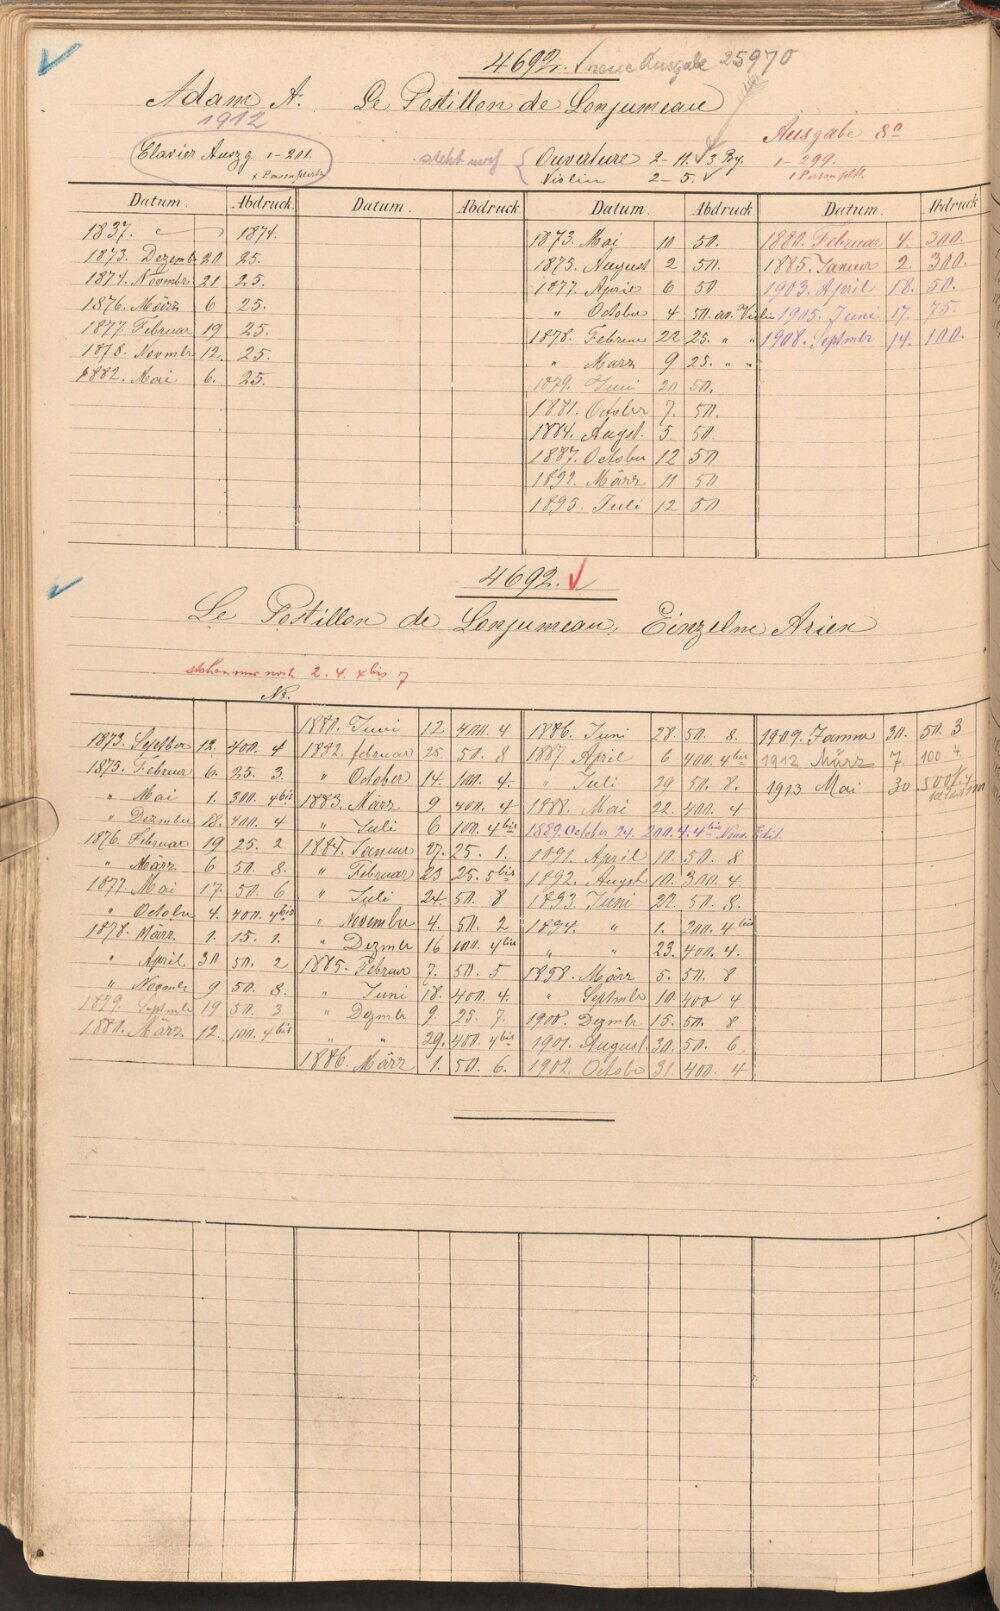 4692. neue Ausgabe 25970
Adam A. Le Postillon de Lonjumeau
1912
Clavier Auszg 1-201.
steht noch { Ouverture 2-11. 3 Bg.
Violin 2-5.
Ausgabe 8º
1-299.
Datum. Abdruck. Datum. Abdruck Datum. Abdruck. Datum. Abdruck
1837. 1874.
1873. Dezemb 20 25.
1874. Novmbr 21 25.
1876. März 6 25.
1877. Februar 19 25.
1878. Novmbr 12. 25.
1882. Mai 6. 25.
1873. Mai 10 50.
1875. August 2 50.
1877. April 6 50
" October 4 50. on. Violin
1878. Februar 22 25. " "
" März 9 25. " "
1879. Juni 20 50.
1881. October 7. 50.
1884. Augst. 5. 50.
1887. October 12 50
1892. März 11 50
1895. Juli 12 50
1880. Februar 4. 300.
1885. Januar 2. 300.
1903. April 18. 50.
1905. Juni 17. 75.
1908. Septmbr 14. 100.
4692.
Le Postillon de Lonjumeau, Einzelne Arien
stehen nur noch 2. 4. 4bis 7
No.
1873. Septber 12. 400. 4
1875. Februar 6. 25. 3.
" Mai 1. 300. 4bis
" Dezmber 18. 400. 4
1876. Februar 19 25. 2
" März 6 50. 8.
1877. Mai 17. 50. 6
" Octobr 4. 400. 4bis
1878. März. 1. 15. 1.
" April 30 50. 2
" Novmbr 9 50. 8.
1879. Septmbr 19 50. 3
1880. März 12. 100. 4bis
1880. Juni 12 400. 4
1882. februar 25. 50. 8
" October 14. 100. 4.
1883. März 9 400. 4
" Juli 6 100. 4bis
1884. Januar 27. 25. 1.
" Februar 23 25. 5bis
" Juli 24 50. 8
" Novembr 4. 50. 2
" Dezmbr 16 100. 4bis
1885. Februar 7. 50. 5
" Juni 18. 400. 4.
" Dezmbr 9. 25. 7.
" " 29. 400. 4bis
1886. März 1. 50. 6.
1886. Juni 28. 50. 8.
1887 April 6 400. 4bis
" Juli 29 50. 8.
1888. Mai 22. 400. 4
1889. October 24. 200. 4. 4bis Nouv. Edit.
1891. April 10. 50. 8
1892. Augst 10. 300. 4
1893 Juni 22. 50. 8.
1894. " 1. 200. 4bis
" " 23. 400. 4.
1898. März 5. 50. 8
" Septmbr 10. 400 4
1900. Dezmbr 15. 50. 8
1901. August. 30. 50. 6.
1902. Octobr 31. 400. 4
1909. Januar 30. 50. 3
1912 März 7. 100 4
1913 Mai 30 500